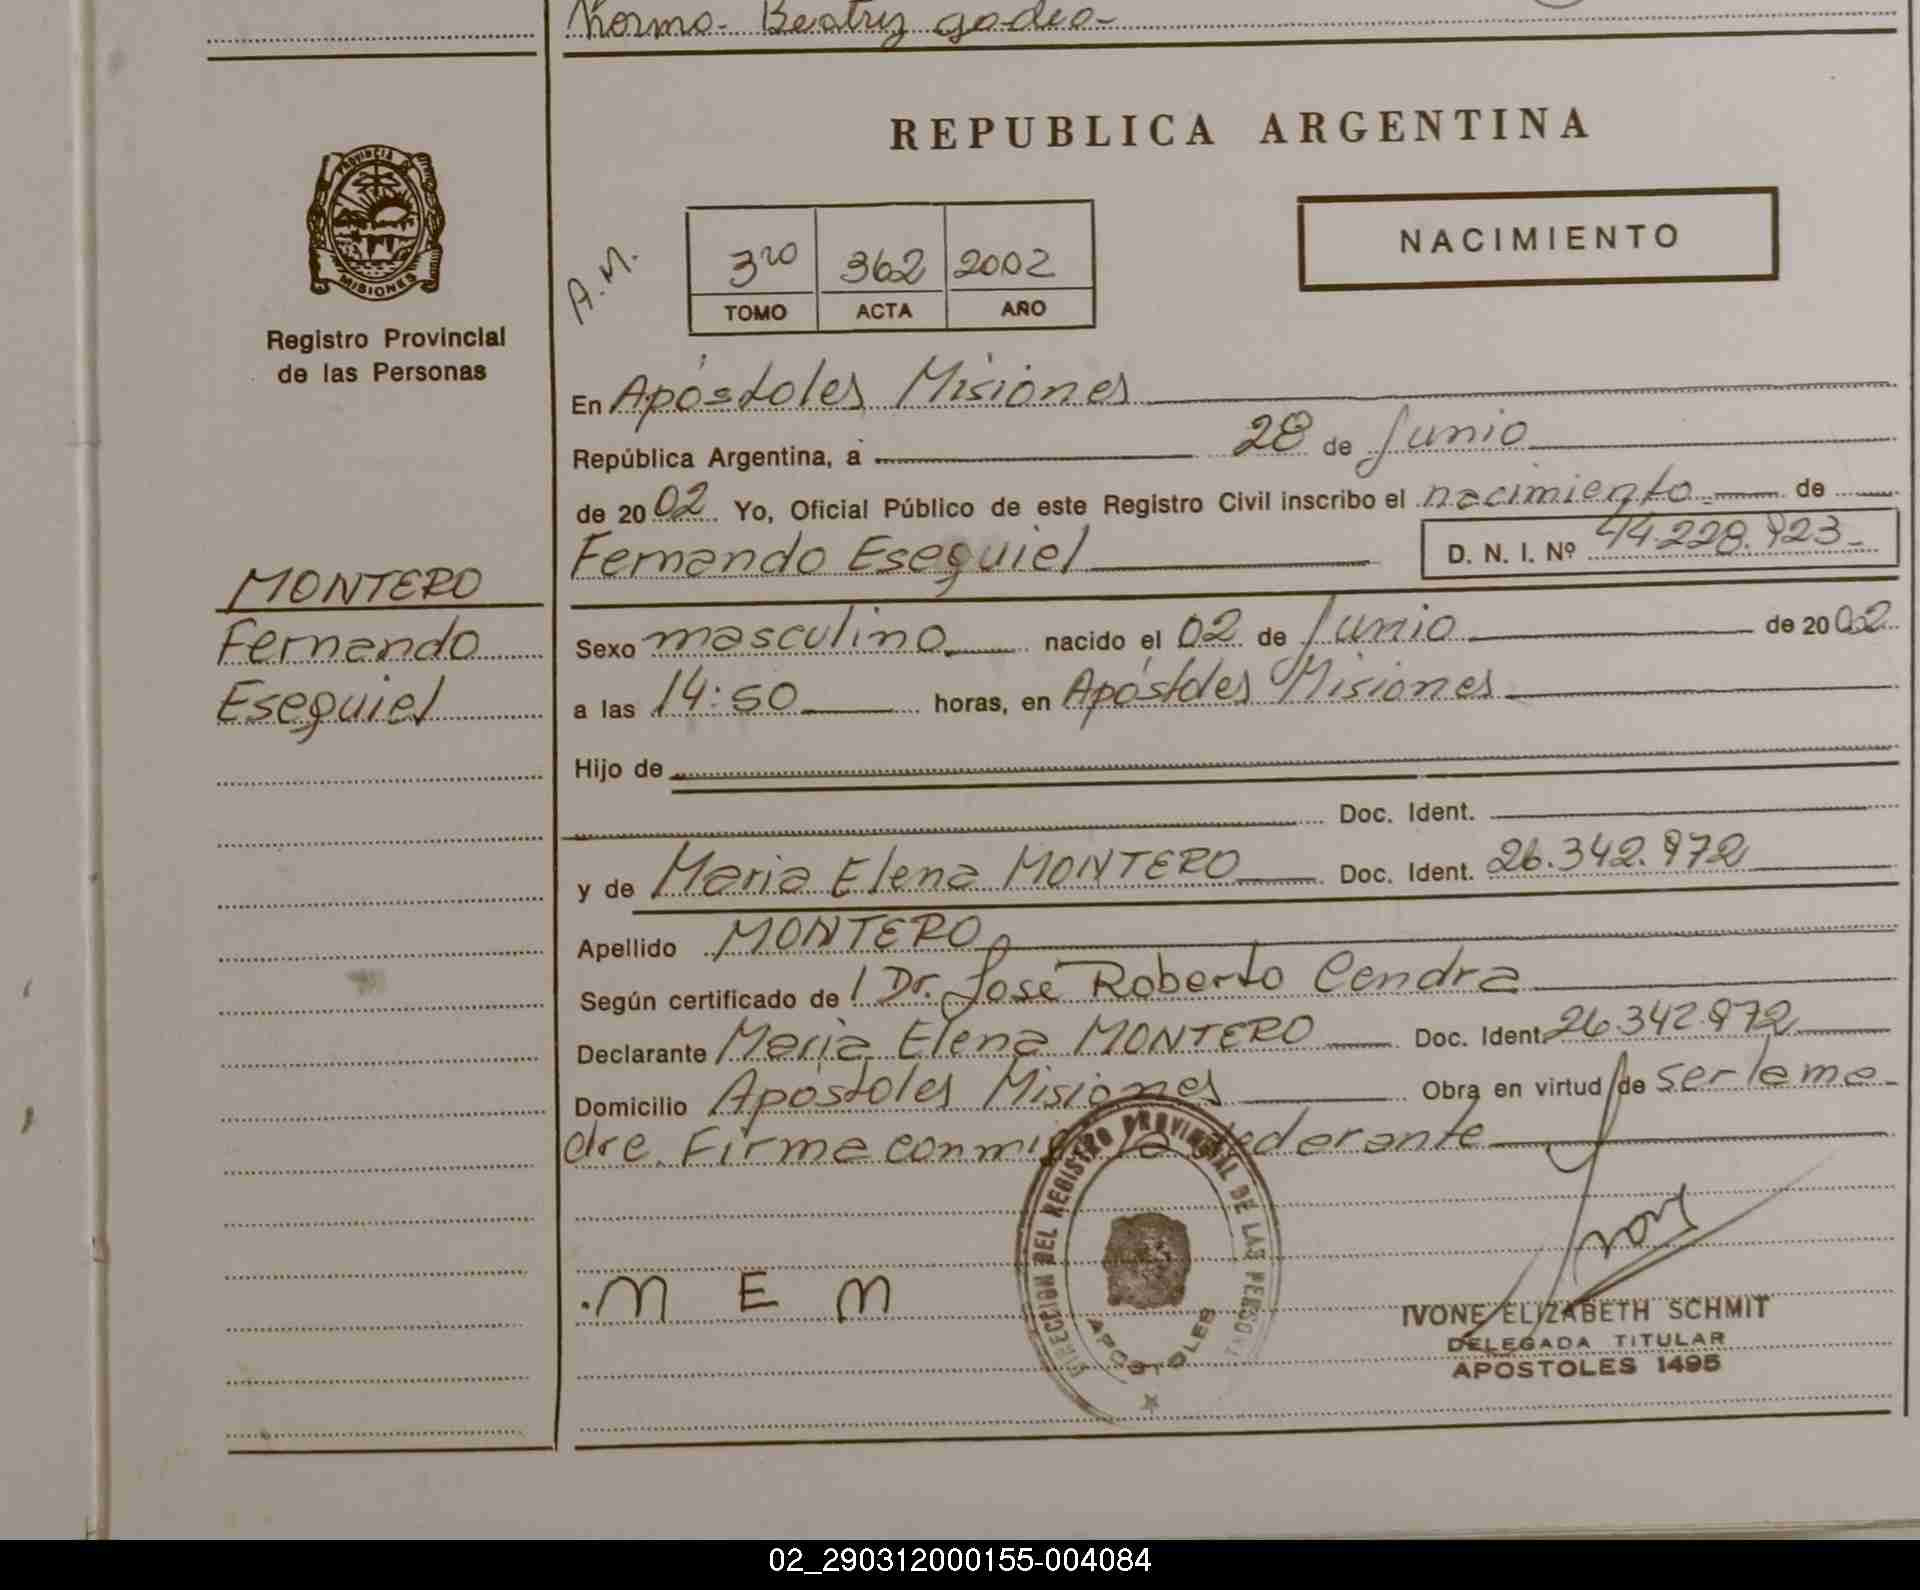 Norma Beatriz Godeo
REPUBLICA ARGENTINA
PROVINCIA DE
MISIONES
Registro Provincial
de las Personas
A.M.
3ro 362 2002
TOMO ACTA AÑO
NACIMIENTO
En Apóstoles Misiones
República Argentina, a 28 de Junio
de 2002 Yo, Oficial Público de este Registro Civil inscribo el nacimiento de
Fernando Esequiel D. N. I. Nº 44.228.923
MONTERO
Fernando
Esequiel
Sexo masculino nacido el 02 de Junio de 2002
a las 14:50 horas, en Apóstoles Misiones
Hijo de
Doc. Ident.
y de Maria Elena MONTERO Doc. Ident. 26.342.972
Apellido MONTERO
Según certificado de Dr. José Roberto Cendra
Declarante Maria Elena MONTERO Doc. Ident. 26.342.972
Domicilio Apóstoles Misiones Obra en virtud de ser la ma
dre. Firma conmigo la
DIRECCION DEL REGISTRO PROVINCIAL DE LAS PERSONAS
APOSTOLES
M E M
IVONE ELIZABETH SCHMIT
DELEGADA TITULAR
APOSTOLES 1495
02_290312000155-004084